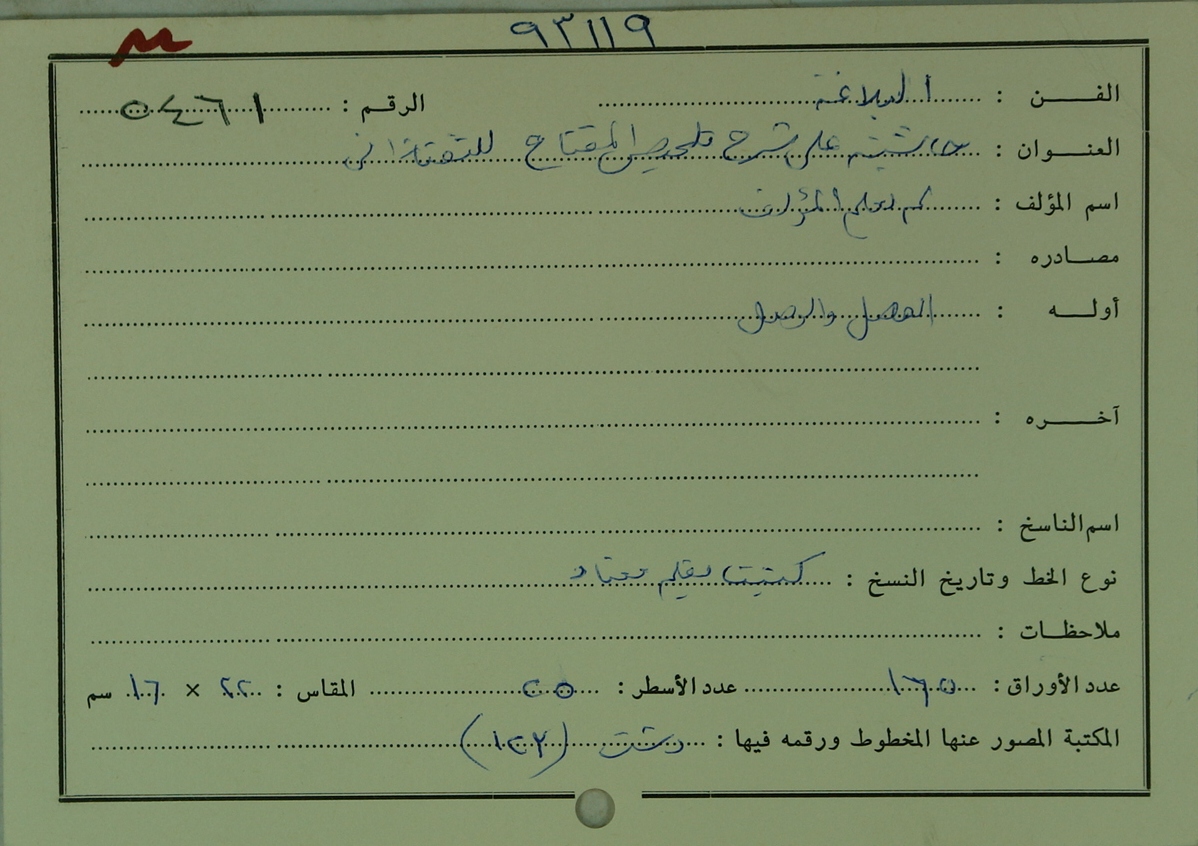 ٩٣١١٩
الفن : البلاغة الرقم : ٥٤٦١
العنوان : حاشية على شرح تلخيص المفتاح للتفتازاني
اسم المؤلف : لم يعلم المؤلف
مصادره :
أوله : الفصل والوصل
آخره :
اسم الناسخ :
نوع الخط وتاريخ النسخ : كتبت بقلم معتاد
ملاحظات :
عدد الأوراق : ١٦٥ عدد الأسطر : ٢٥ المقاس : ٢٢ × ١٦ سم
المكتبة المصور عنها المخطوط ورقمه فيها : دشت (١٢٢)